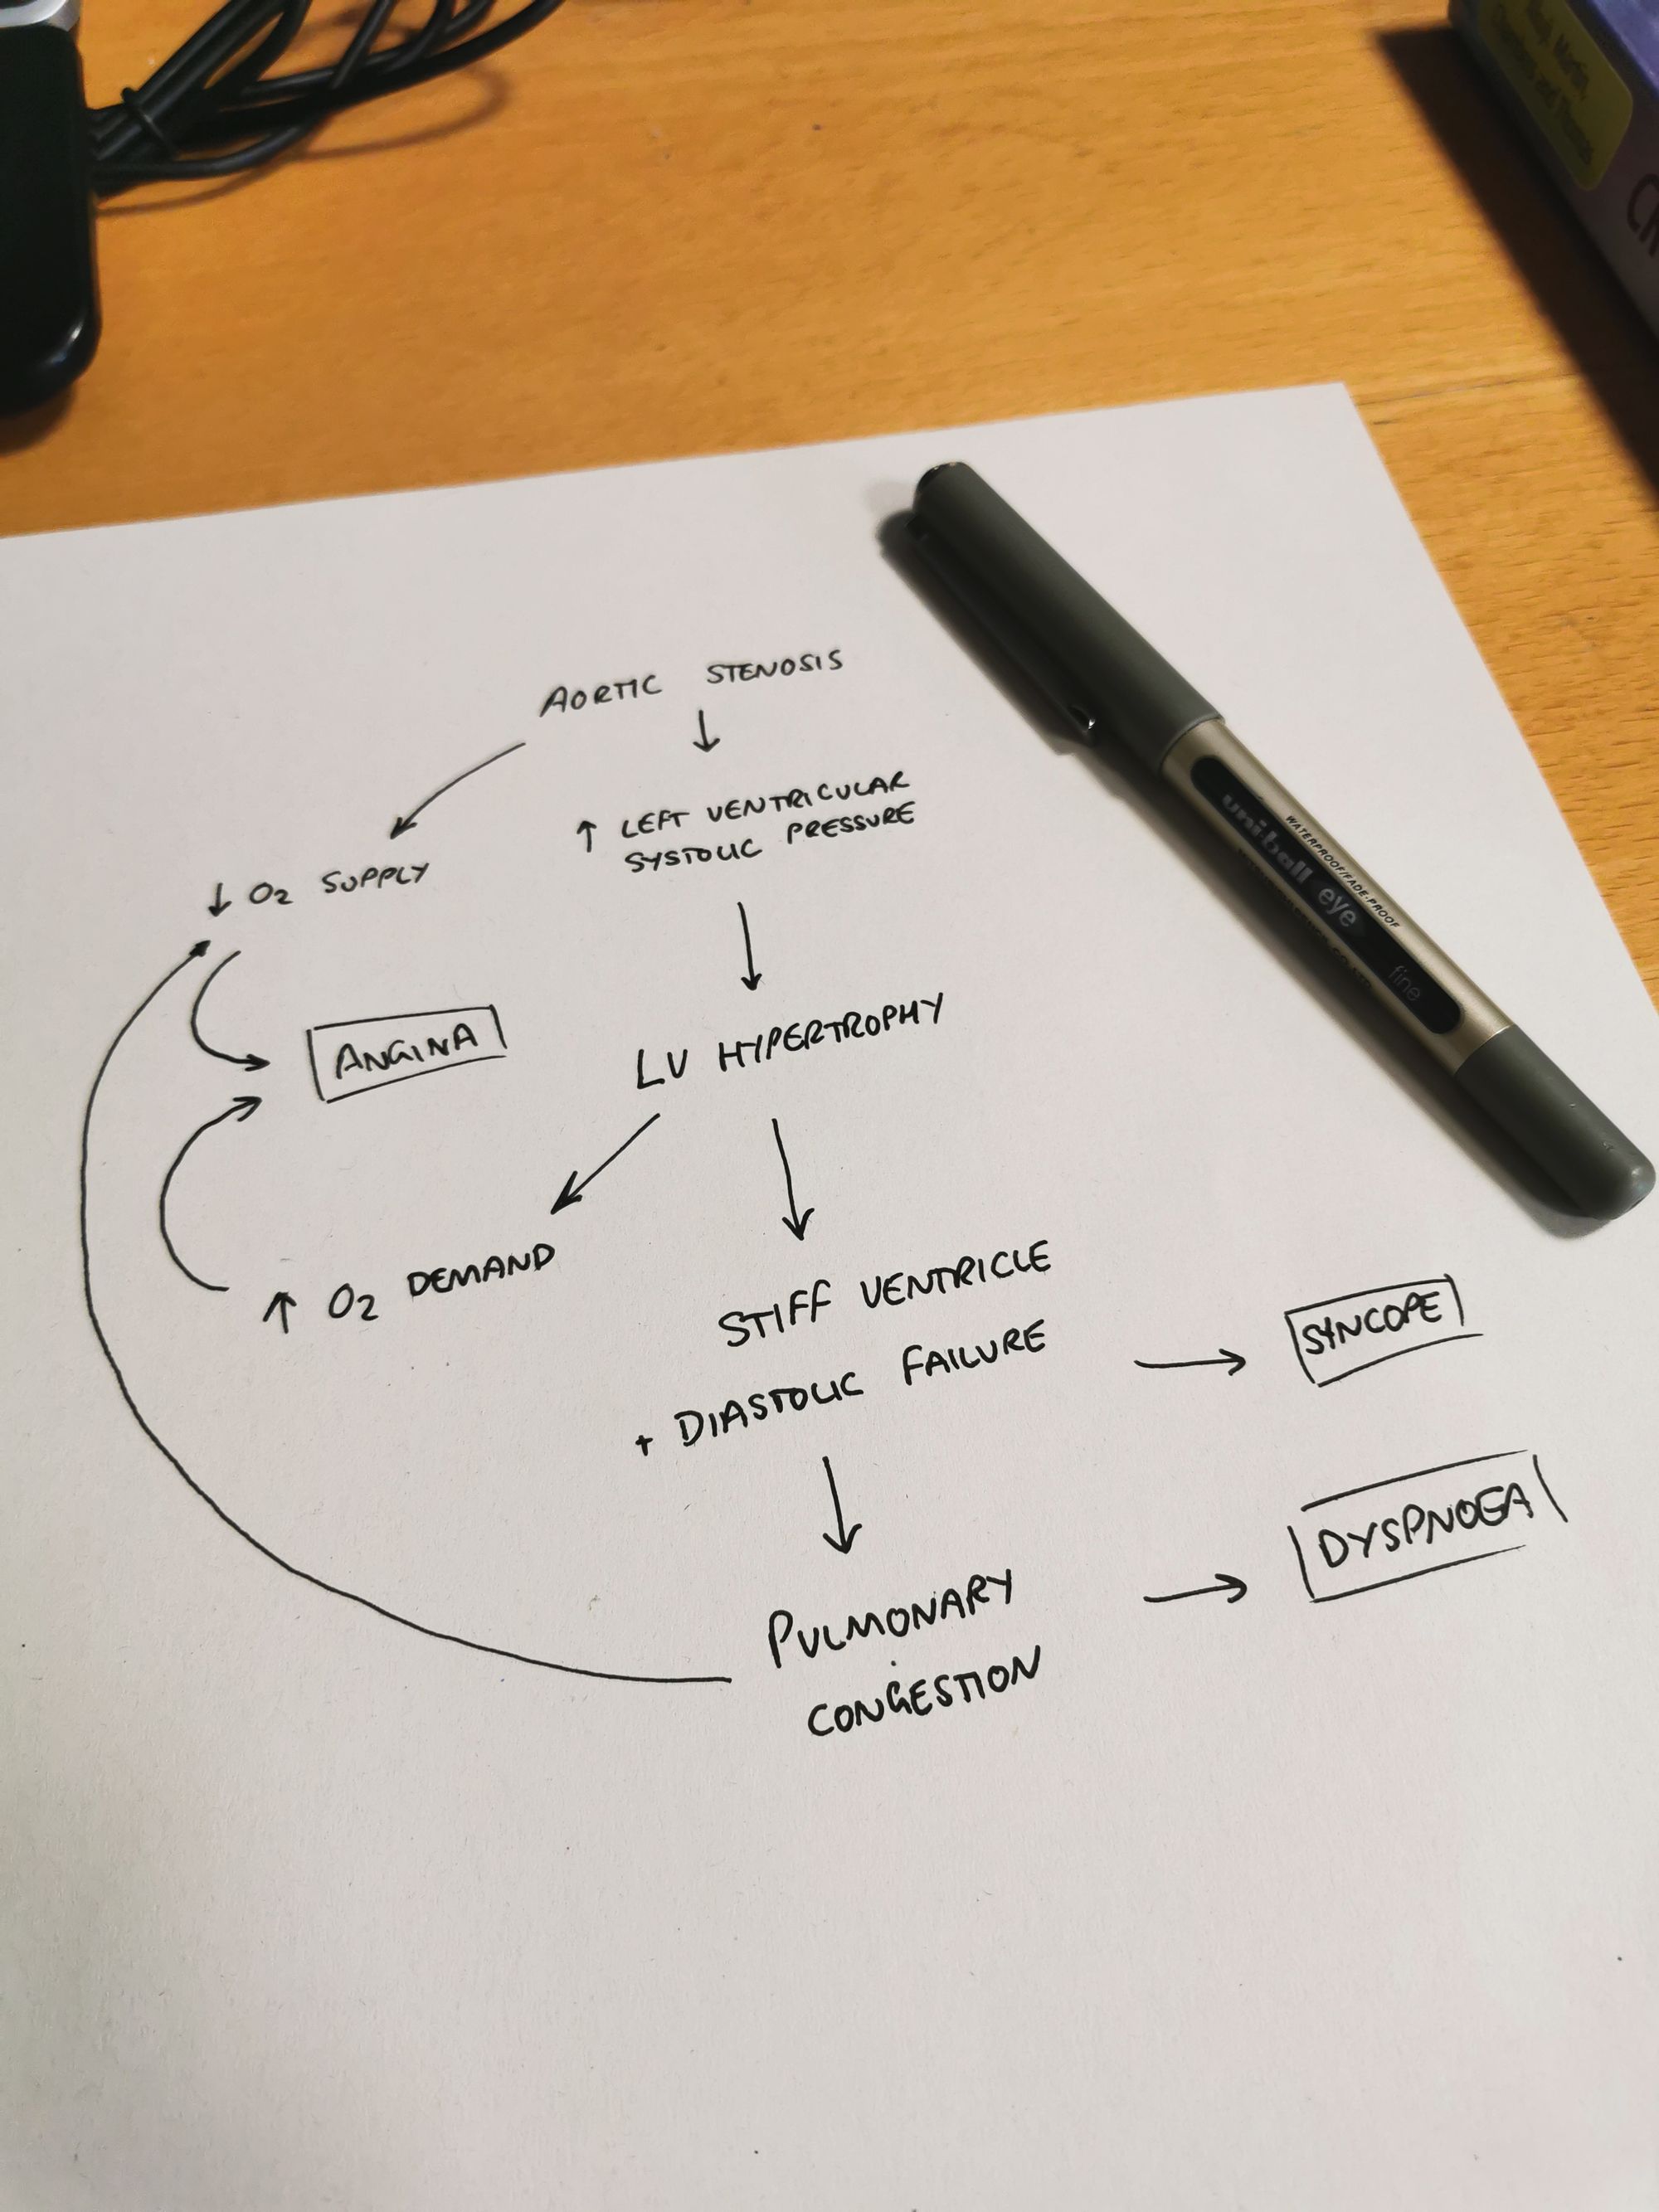 AORTIC STENOSIS
↓
↑ LEFT VENTRICULAR
SYSTOLIC PRESSURE
↓ O2 SUPPLY
ANGINA
LV HYPERTROPHY
↑ O2 DEMAND
STIFF VENTRICLE
+ DIASTOLIC FAILURE
SYNCOPE
PULMONARY
CONGESTION
DYSPNOEA
uni-ball eye
fine
WATERPROOF/FADE-PROOF